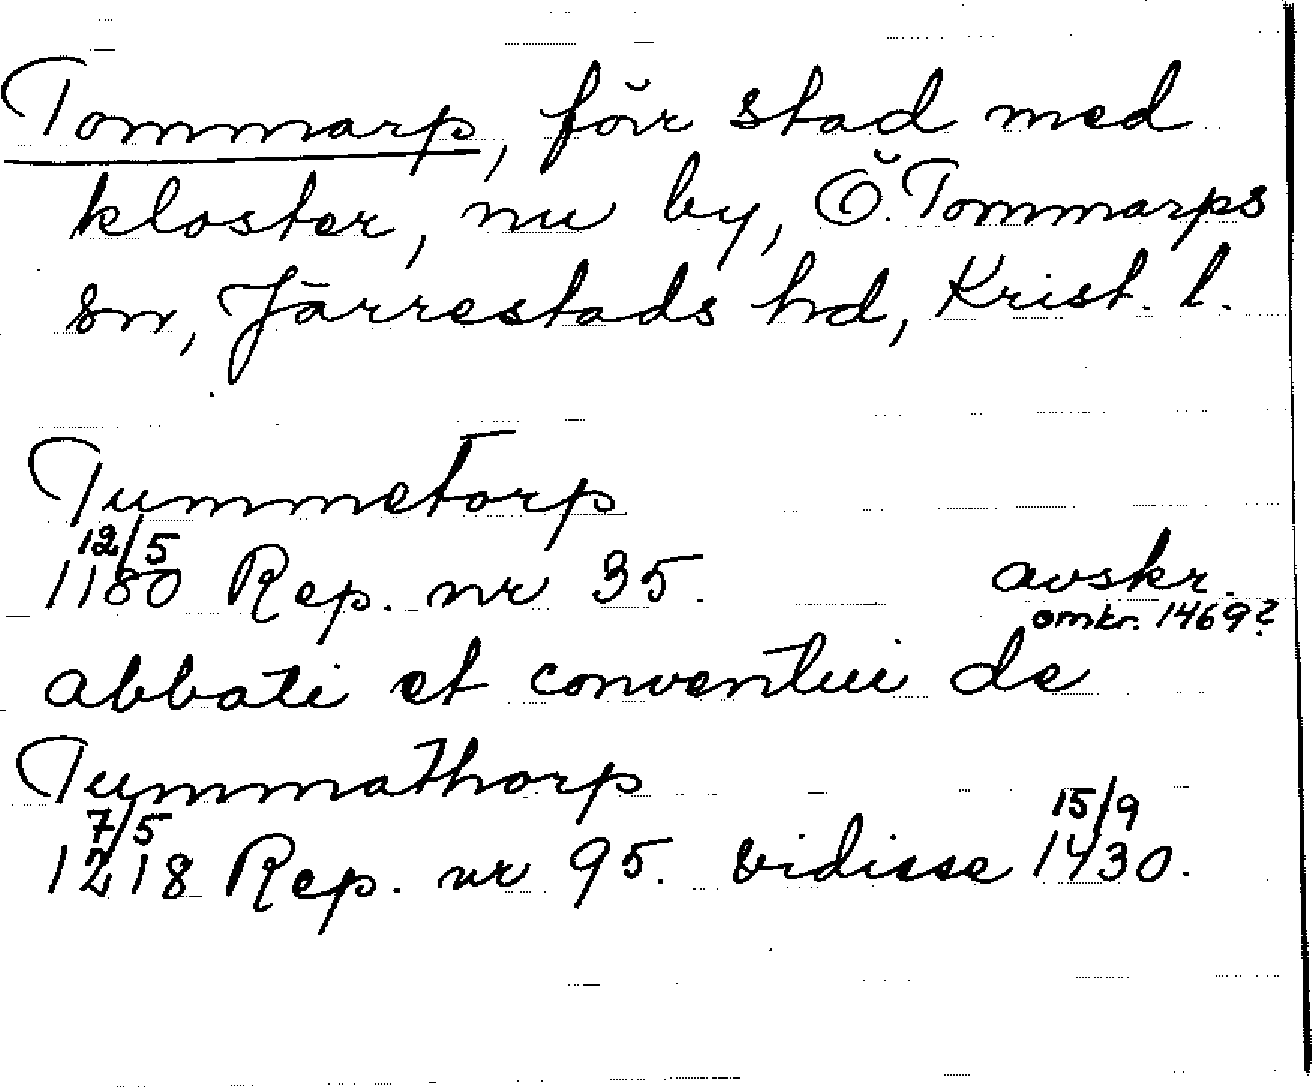 Tommarp, förr stad med
kloster, nu by, Ö. Tommarps
sn, Järrestads hd, Krist. l.
Tummetorp
12/5
1180 Rep. nr 35. avskr.
omkr. 1469?
abbati et conventui de
Tummathorp
7/5 15/9
1218 Rep. nr 95. vidisse 1430.